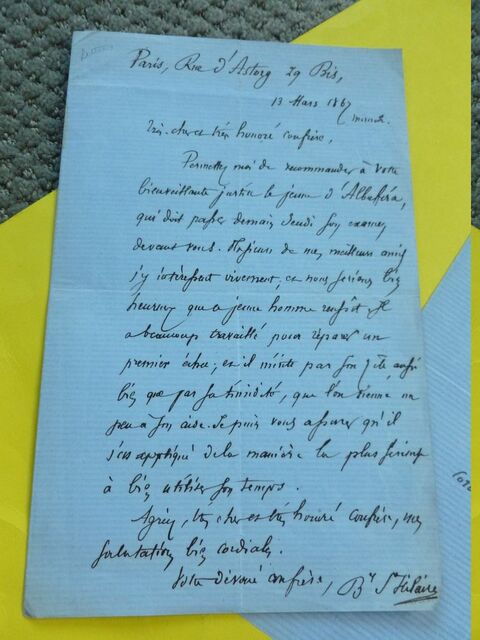 Paris, Rue d'Astorg 29 Bis,
13 Mars 1867
Très cher et très honoré confrère,
Permettez moi de recommander à votre
bienveillante justice le jeune d'Albuféra,
qui doit passer demain Jeudi son examen
devant vous. Plusieurs de mes meilleurs amis
s'y intéressent vivement, et nous serions bien
heureux que ce jeune homme réussît. Il
a beaucoup travaillé pour réparer un
premier échec; et il mérite par son zèle aussi
bien que par sa timidité, que l'on vienne un
peu à son aide. Je puis vous assurer qu'il
s'est appliqué de la manière la plus sérieuse
à bien utiliser son temps.
Agréez, très cher et très honoré confrère, mes
salutations bien cordiales.
Votre dévoué confrère, By St Hilaire